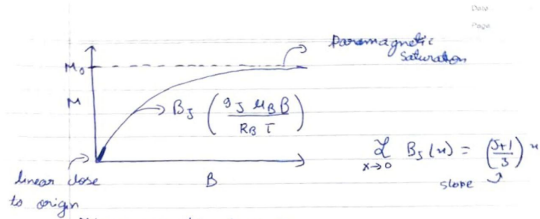 Date
Page
Paramagnetic
Saturation
M₀
M
B_J (g_J μ_B B / k_B T)
lim x→0 B_J(x) = (J+1 / 3) x
slope
linear close
to origin
B